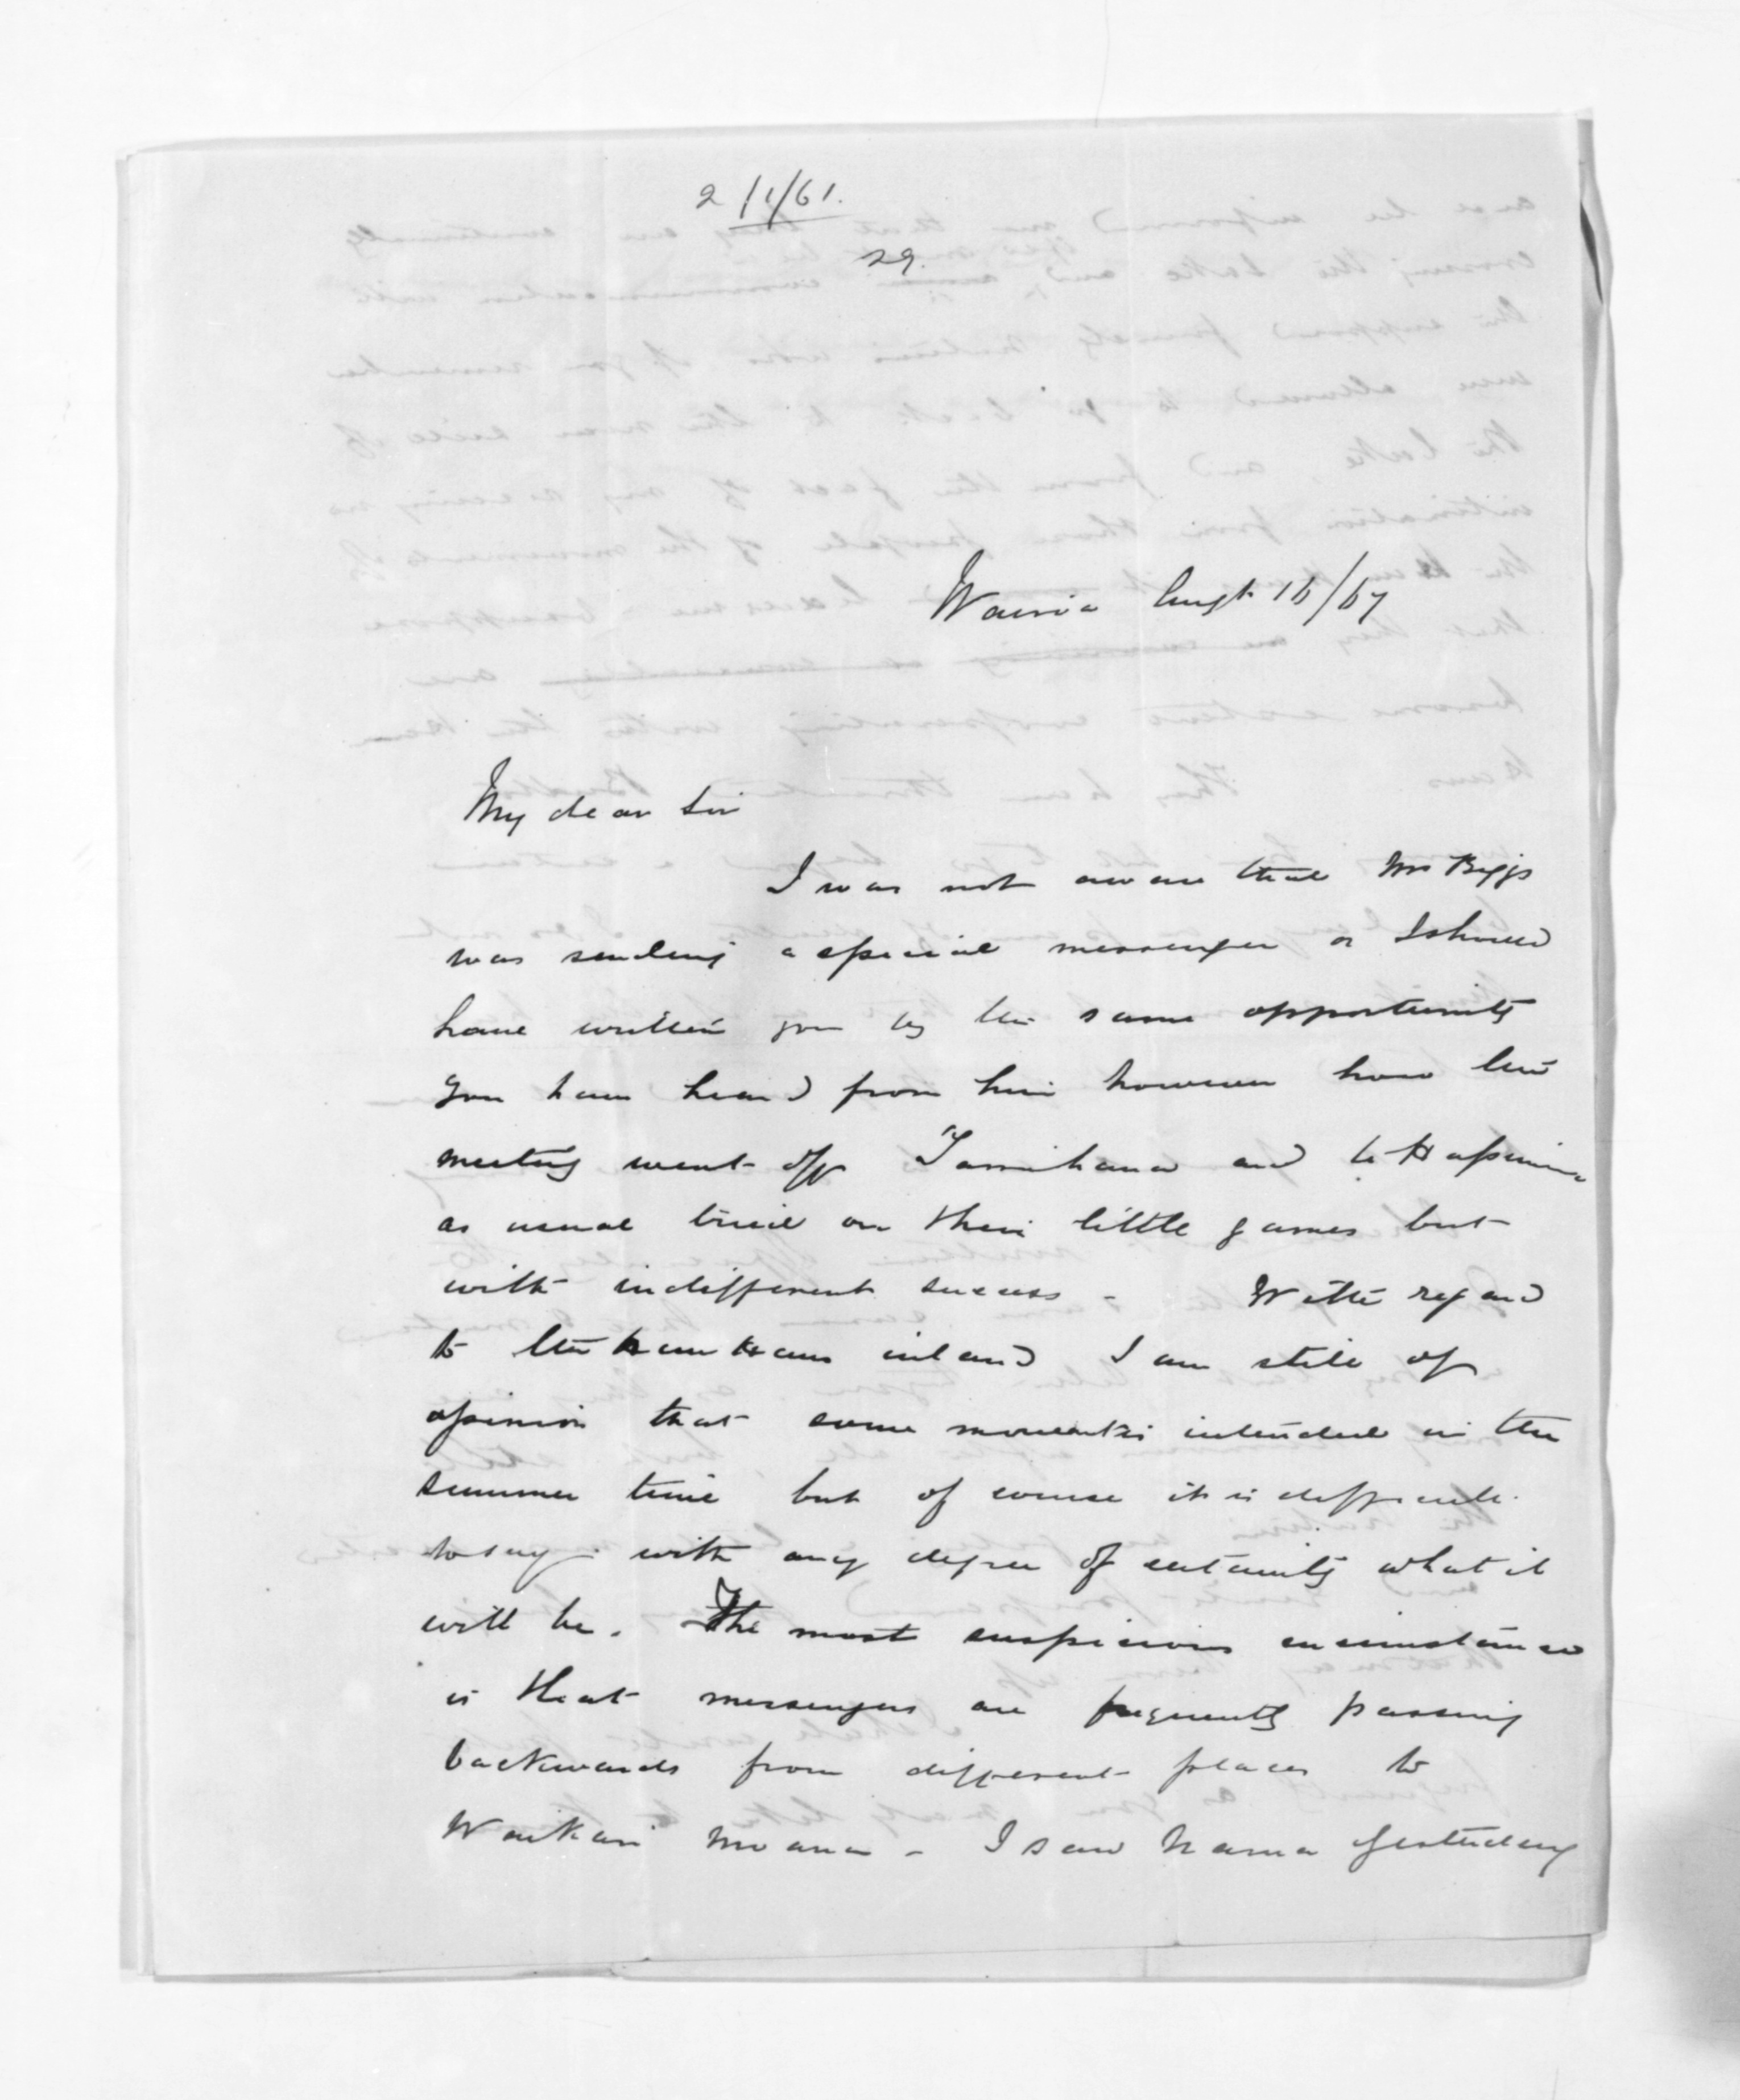 2 /1/61.
29.
Wairoa Augt 16/67
My dear Sir
I was not aware that Mr Biggs
was sending a special messenger or I should
have written you by the same opportunity
you have heard from him however how the
meeting went off Tamihana and te Hapimana
as usual tried on their little games but
with indifferent success - With regard
to the Hau Haus inland I am still of
opinion that some movemt is intended in the
summer time but of course it is difficult
to say with any degree of certainty what it
will be. The most suspicious circumstance
is that messengers are frequently passing
backwards from different places to
Waikari Moana - I saw Hama yesterday